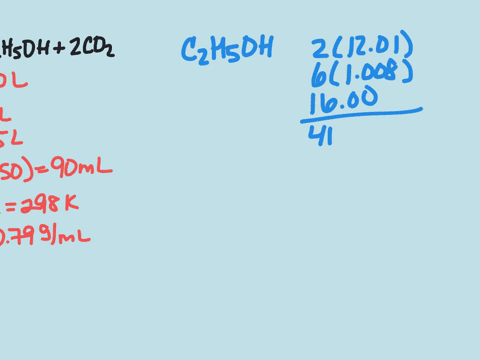 H5OH + 2CO2
C2H5OH 2(12.01)
6(1.008)
16.00
41
0L
L
5L
50) = 90mL
= 298 K
0.79 g/mL